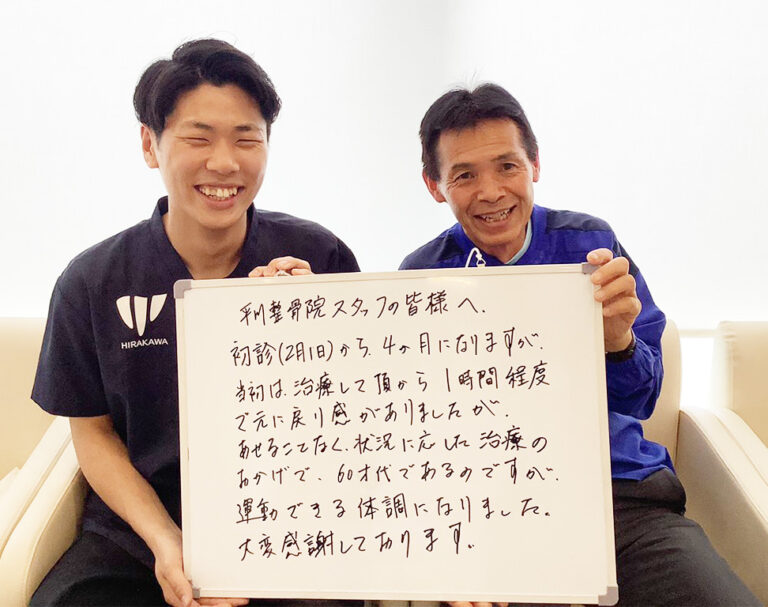 HIRAKAWA
平川整骨院スタッフの皆様へ.
初診(2月1日)から、4ヶ月になりますが、
当初は、治療して頂から1時間程度
で元に戻り感がありましたが、
あせることなく、状況に応した治療の
おかげで、60才代であるのですが、
運動できる体調になりました。
大変感謝しております。